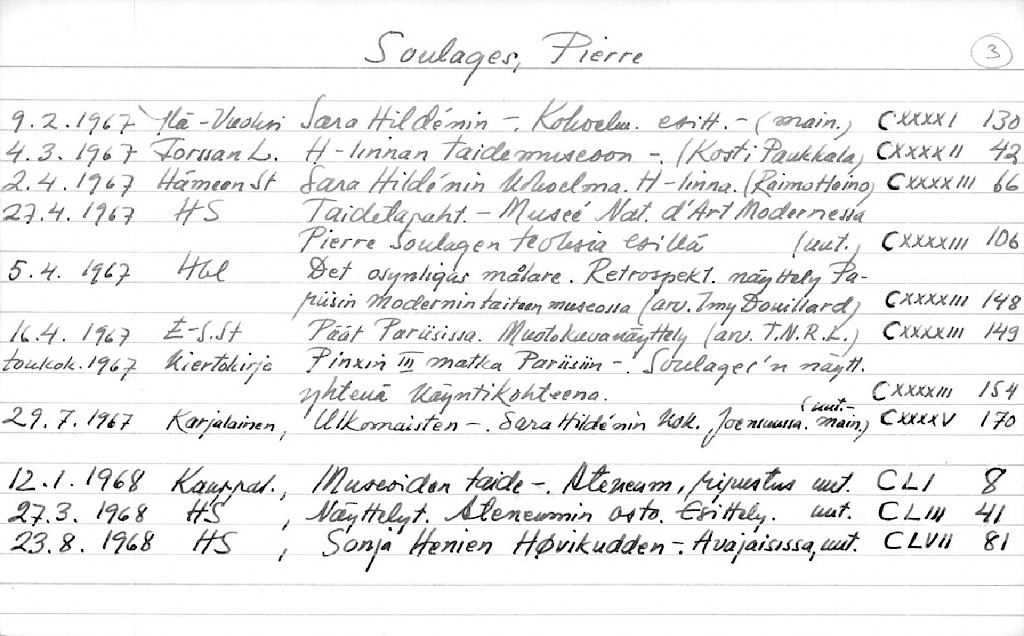 Soulages, Pierre 3
9.2.1967 Ylä-Vuoksi Sara Hildénin -. Kokoelm. esitt. - (main.) CXXXXI 130
4.3.1967 Forssan L. H-linnan taidemuseoon -. (Kosti Paukkala) CXXXXII 42
2.4.1967 Hämeen St Sara Hildénin kokoelma. H-linna. (Raimo Heino) CXXXXIII 66
27.4.1967 HS Taidetapaht. - Museé Nat. d'Art Modernessa
Pierre Soulagen teoksia esillä (uut.) CXXXXIII 106
5.4.1967 Hbl Det osynligas målare. Retrospekt. näyttely Pa-
riisin modernin taiteen museossa (arv. Imy Douillard) CXXXXIII 148
16.4.1967 E-S.St Päät Pariisissa. Muotokuvanäyttely (arv. T.N.R.L.) CXXXXIII 149
toukok.1967 Kiertokirje Pinxin III matka Pariisiin -. Soulages'n näytt.
yhtenä käyntikohteena. CXXXXIII 154
29.7.1967 Karjalainen, Ulkomaisten -. Sara Hildénin kok. Joensuussa. (uut.- main.) CXXXXV 170
12.1.1968 Kauppal., Museoiden taide -. Ateneum, ripustus uut. CLI 8
27.3.1968 HS, Näyttelyt. Ateneumin osto. Esittely. uut. CLIII 41
23.8.1968 HS, Sonja Henien Høvikudden -. Avajaisissa, uut. CLVII 81